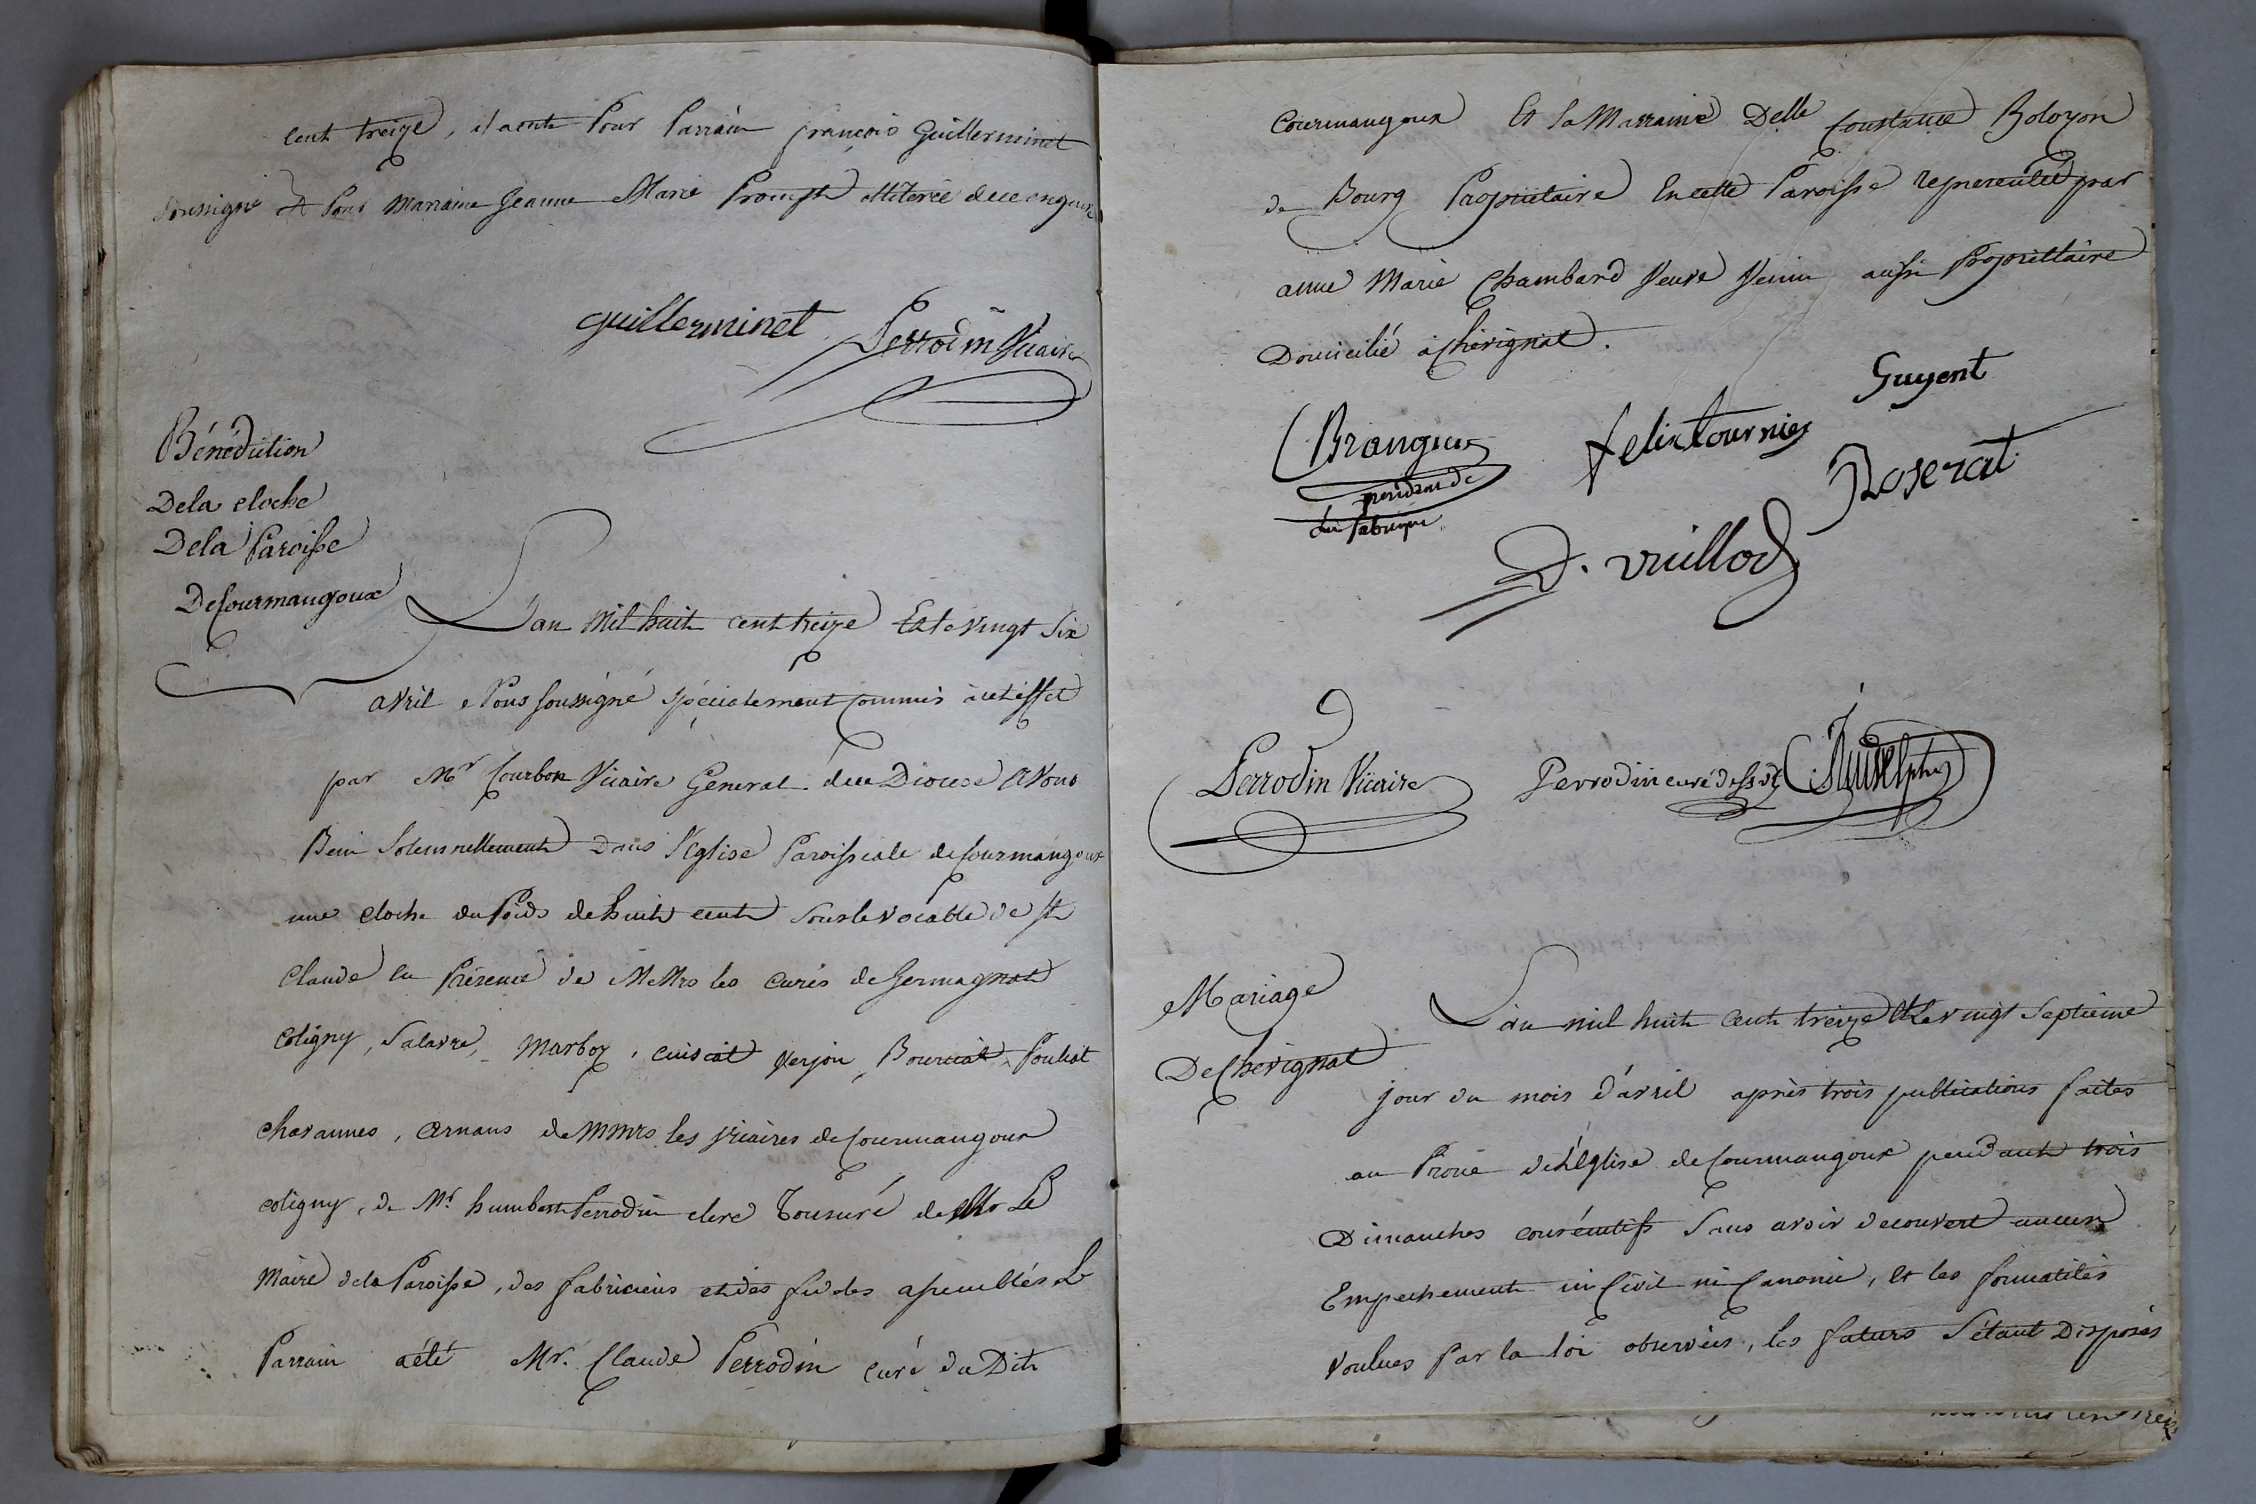 cent treize, il a eut Pour Parrain françois Guillerminet
soussigné et Pour Marraine Jeanne Marie Prompt illiterée de ce enquis
guillerminet Perrodin Vicaire
Bénédiction
De la cloche
De la Paroisse
De Courmangoux
L'an Mil huit cent treize Et le vingt six
avril Nous soussigné spécialement commis à cet effet
par Mr Courbon Vicaire Géneral du Diocese avons
Beni Solemnellement Dans l'Eglise Paroissiale de Courmangoux
une cloche du Poids de huit cent sous le vocable de st
Claude en Présence de MMrs les curés de Germagnat
Coligny, Salavre, Marboz, cuisiat Verjon, Bourciat, Pouliat
chavannes, arnans de MMrs les Vicaires de Courmangoux
coligny, de Mr. humbert Perrodin clerc Tonsuré de Mr Le
Maire de la Paroisse, des fabriciens et des fideles assemblés Le
Parrain a été Mr. Claude Perrodin curé du Dit
Courmangoux Et la Marraine Delle Constance Boloyon
de Bourg Propriétaire En cette Paroisse representée par
anne Marie Chambard Veuve Venin aussi Propriettaire
Domicilié à Chevignat.
Guyent
Brangier felix tournier
Roserat
presidend de
la fabrique
D. vuillod
Perrodin Vicaire Perrodin curé dessvt
Mariage
De Chevignat
L'an mil huit cent treize Et Le vingt septieme
jour du mois d'avril après trois publications faites
au Prone de l'Eglise de Courmangoux pendant trois
Dimanches consécutifs Sans avoir decouvert aucun
Empechement ni Civil ni Canonic, et les formalités
voulues par la loi observées, les futurs s'étant Disposés